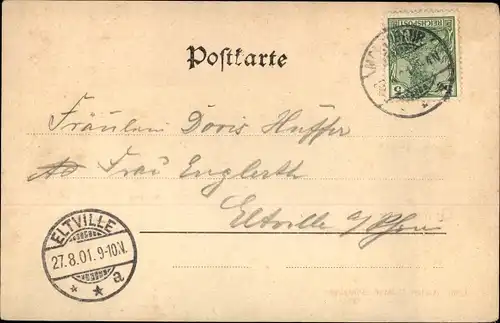 Postkarte
REICHSPOST
5
Fräulein Doris Hüffer
Frau Englerth
Eltville a/Rhein
ELTVILLE
27.8.01. 9-10N.
* * a